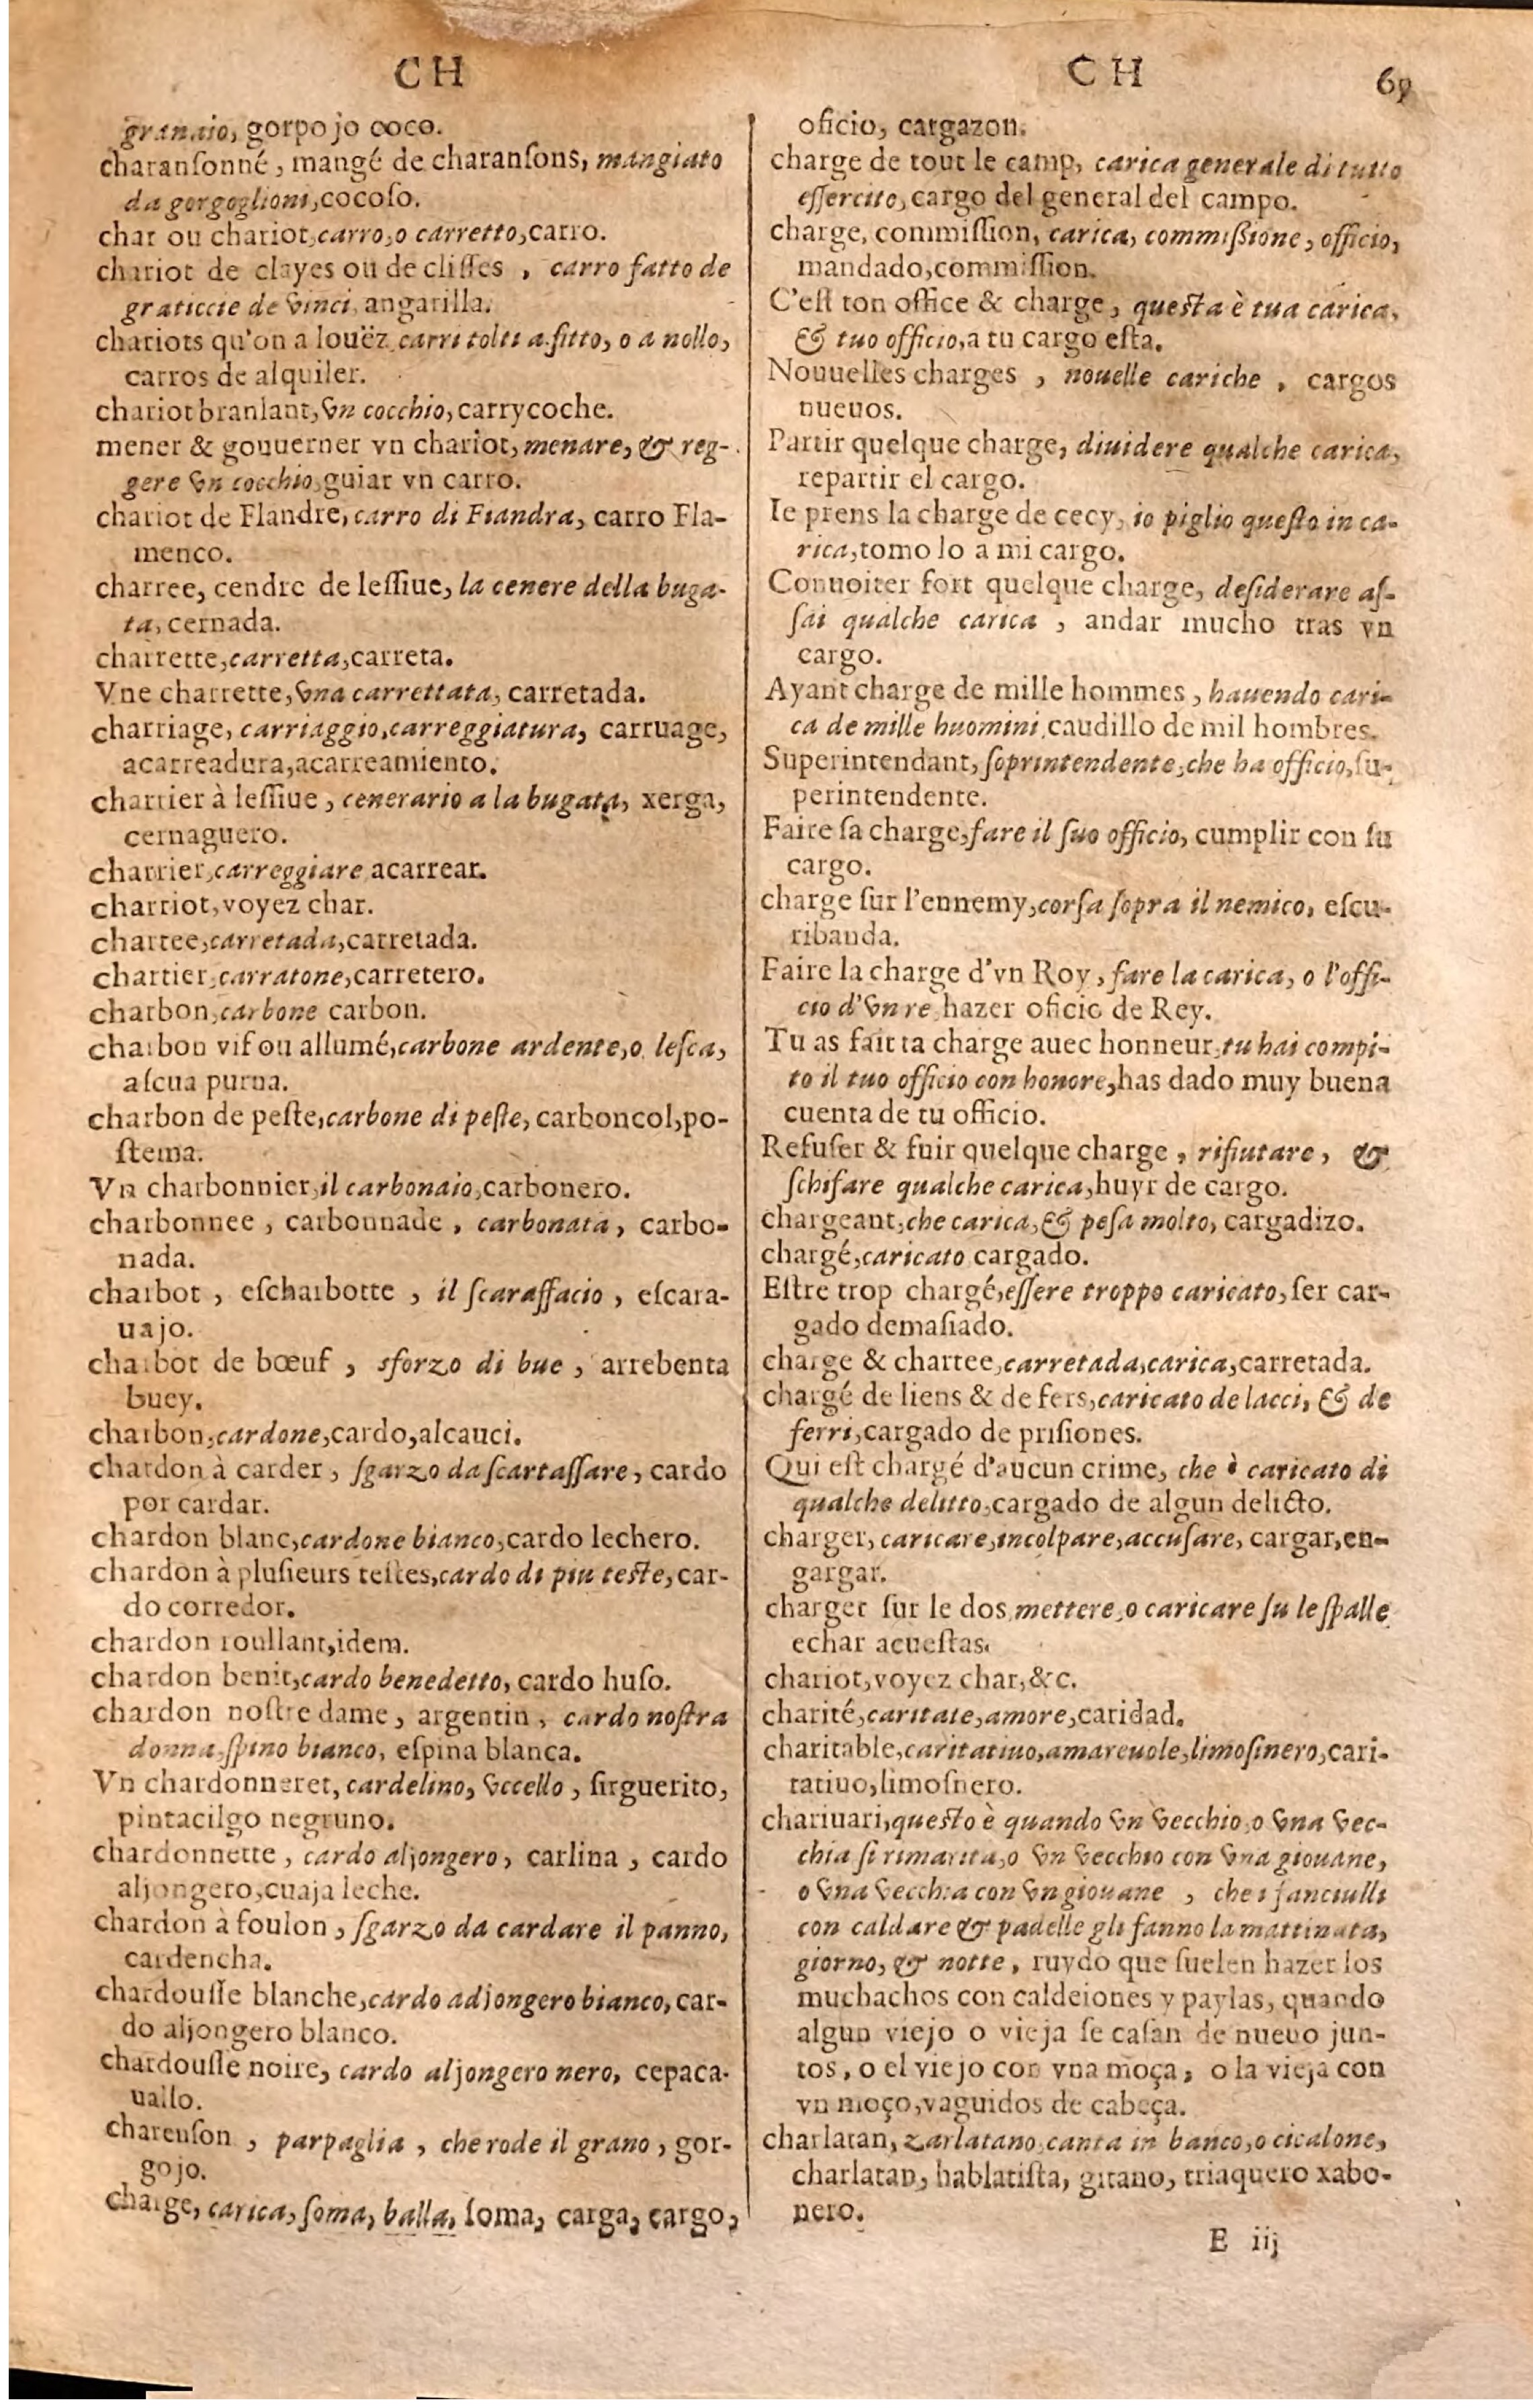 CH
granaio, gorpojo coco.
charanſonné, mangé de charanſons, mangiato
da gorgoglioni, cocoſo.
char ou chariot, carro, o carretto, carro.
chariot de clayes ou de cliſſes, carro fatto de
graticcie de vinci, angarilla.
chariots qu'on a louëz, carri tolti a fitto, o a nollo,
carros de alquiler.
chariot branlant, vn cocchio, carrycoche.
mener & gouuerner vn chariot, menare, & reg-
gere vn cocchio, guiar vn carro.
chariot de Flandre, carro di Fiandra, carro Fla-
menco.
charree, cendre de leſſiue, la cenere della buga-
ta, cernada.
charrette, carretta, carreta.
Vne charrette, vna carrettata, carretada.
charriage, carriaggio, carreggiatura, carruage,
acarreadura, acarreamiento.
charrier à leſſiue, cenerario a la bugata, xerga,
cernaguero.
charrier, carreggiare, acarrear.
charriot, voyez char.
chartee, carretada, carretada.
chartier, carratone, carretero.
charbon, carbone carbon.
charbon vif ou allumé, carbone ardente, o leſca,
aſcua purna.
charbon de peſte, carbone di peſte, carboncol, po-
ſtema.
Vn charbonnier, il carbonaio, carbonero.
charbonnee, carbonnade, carbonata, carbo-
nada.
charbot, eſcharbotte, il ſcaraffacio, eſcara-
uajo.
charbot de bœuf, sforzo di bue, arrebenta
buey.
charbon, cardone, cardo, alcauci.
chardon à carder, ſgarzo da ſcartaſſare, cardo
por cardar.
chardon blanc, cardone bianco, cardo lechero.
chardon à pluſieurs teſtes, cardo di piu teſte, car-
do corredor.
chardon roullant, idem.
chardon benit, cardo benedetto, cardo huſo.
chardon noſtre dame, argentin, cardo noſtra
donna, ſpino bianco, eſpina blanca.
Vn chardonneret, cardelino, vccello, ſirguerito,
pintacilgo negruno.
chardonnette, cardo aljongero, carlina, cardo
aljongero, cuaja leche.
chardon à foulon, ſgarzo da cardare il panno,
cardencha.
chardouſſe blanche, cardo adjongero bianco, car-
do aljongero blanco.
chardouſſe noire, cardo aljongero nero, cepaca-
uallo.
charenſon, parpaglia, che rode il grano, gor-
gojo.
charge, carica, ſoma, balla, ſoma, carga, cargo,
CH 69
oficio, cargazon.
charge de tout le camp, carica generale di tutto
eſſercito, cargo del general del campo.
charge, commiſſion, carica, commiſſione, officio,
mandado, commiſſion.
C'eſt ton office & charge, queſta è tua carica,
& tuo officio, a tu cargo eſta.
Nouuelles charges, nouelle cariche, cargos
nueuos.
Partir quelque charge, diuidere qualche carica,
repartir el cargo.
Ie prens la charge de cecy, io piglio queſto in ca-
rica, tomo lo a mi cargo.
Conuoiter fort quelque charge, deſiderare aſ-
ſai qualche carica, andar mucho tras vn
cargo.
Ayant charge de mille hommes, hauendo cari-
ca de mille huomini, caudillo de mil hombres.
Superintendant, ſoprintendente, che ha officio, ſu-
perintendente.
Faire ſa charge, fare il ſuo officio, cumplir con ſu
cargo.
charge ſur l'ennemy, corſa ſopra il nemico, eſcu-
ribanda.
Faire la charge d'vn Roy, fare la carica, o l'offi-
cio d'vn re, hazer oficio de Rey.
Tu as fait ta charge auec honneur, tu hai compi-
to il tuo officio con honore, has dado muy buena
cuenta de tu officio.
Refuſer & fuir quelque charge, rifiutare, &
ſchifare qualche carica, huyr de cargo.
chargeant, che carica, & peſa molto, cargadizo.
chargé, caricato cargado.
Eſtre trop chargé, eſſere troppo caricato, ſer car-
gado demaſiado.
charge & chartee, carretada, carica, carretada.
chargé de liens & de fers, caricato de lacci, & de
ferri, cargado de priſiones.
Qui eſt chargé d'aucun crime, che è caricato di
qualche delitto, cargado de algun delicto.
charger, caricare, incolpare, accuſare, cargar, en-
gargar.
charger ſur le dos, mettere, o caricare ſu le ſpalle
echar acueſtas.
chariot, voyez char, &c.
charité, caritate, amore, caridad.
charitable, caritatiuo, amareuole, limoſinero, cari-
tatiuo, limoſnero.
chariuari, queſto è quando vn vecchio, o vna vec-
chia ſi rimarita, o vn vecchio con vna giouane,
o vna vecchia con vn giouane, che i fanciulli
con caldare & padelle gli fanno la mattinata,
giorno, & notte, ruydo que ſuelen hazer los
muchachos con calderones y paylas, quando
algun viejo o vieja ſe caſan de nueuo jun-
tos, o el viejo con vna moça, o la vieja con
vn moço, vaguidos de cabeça.
charlatan, zarlatano, canta in banco, o cicalone,
charlatan, hablatiſta, gitano, triaquero xabo-
nero.
E iij